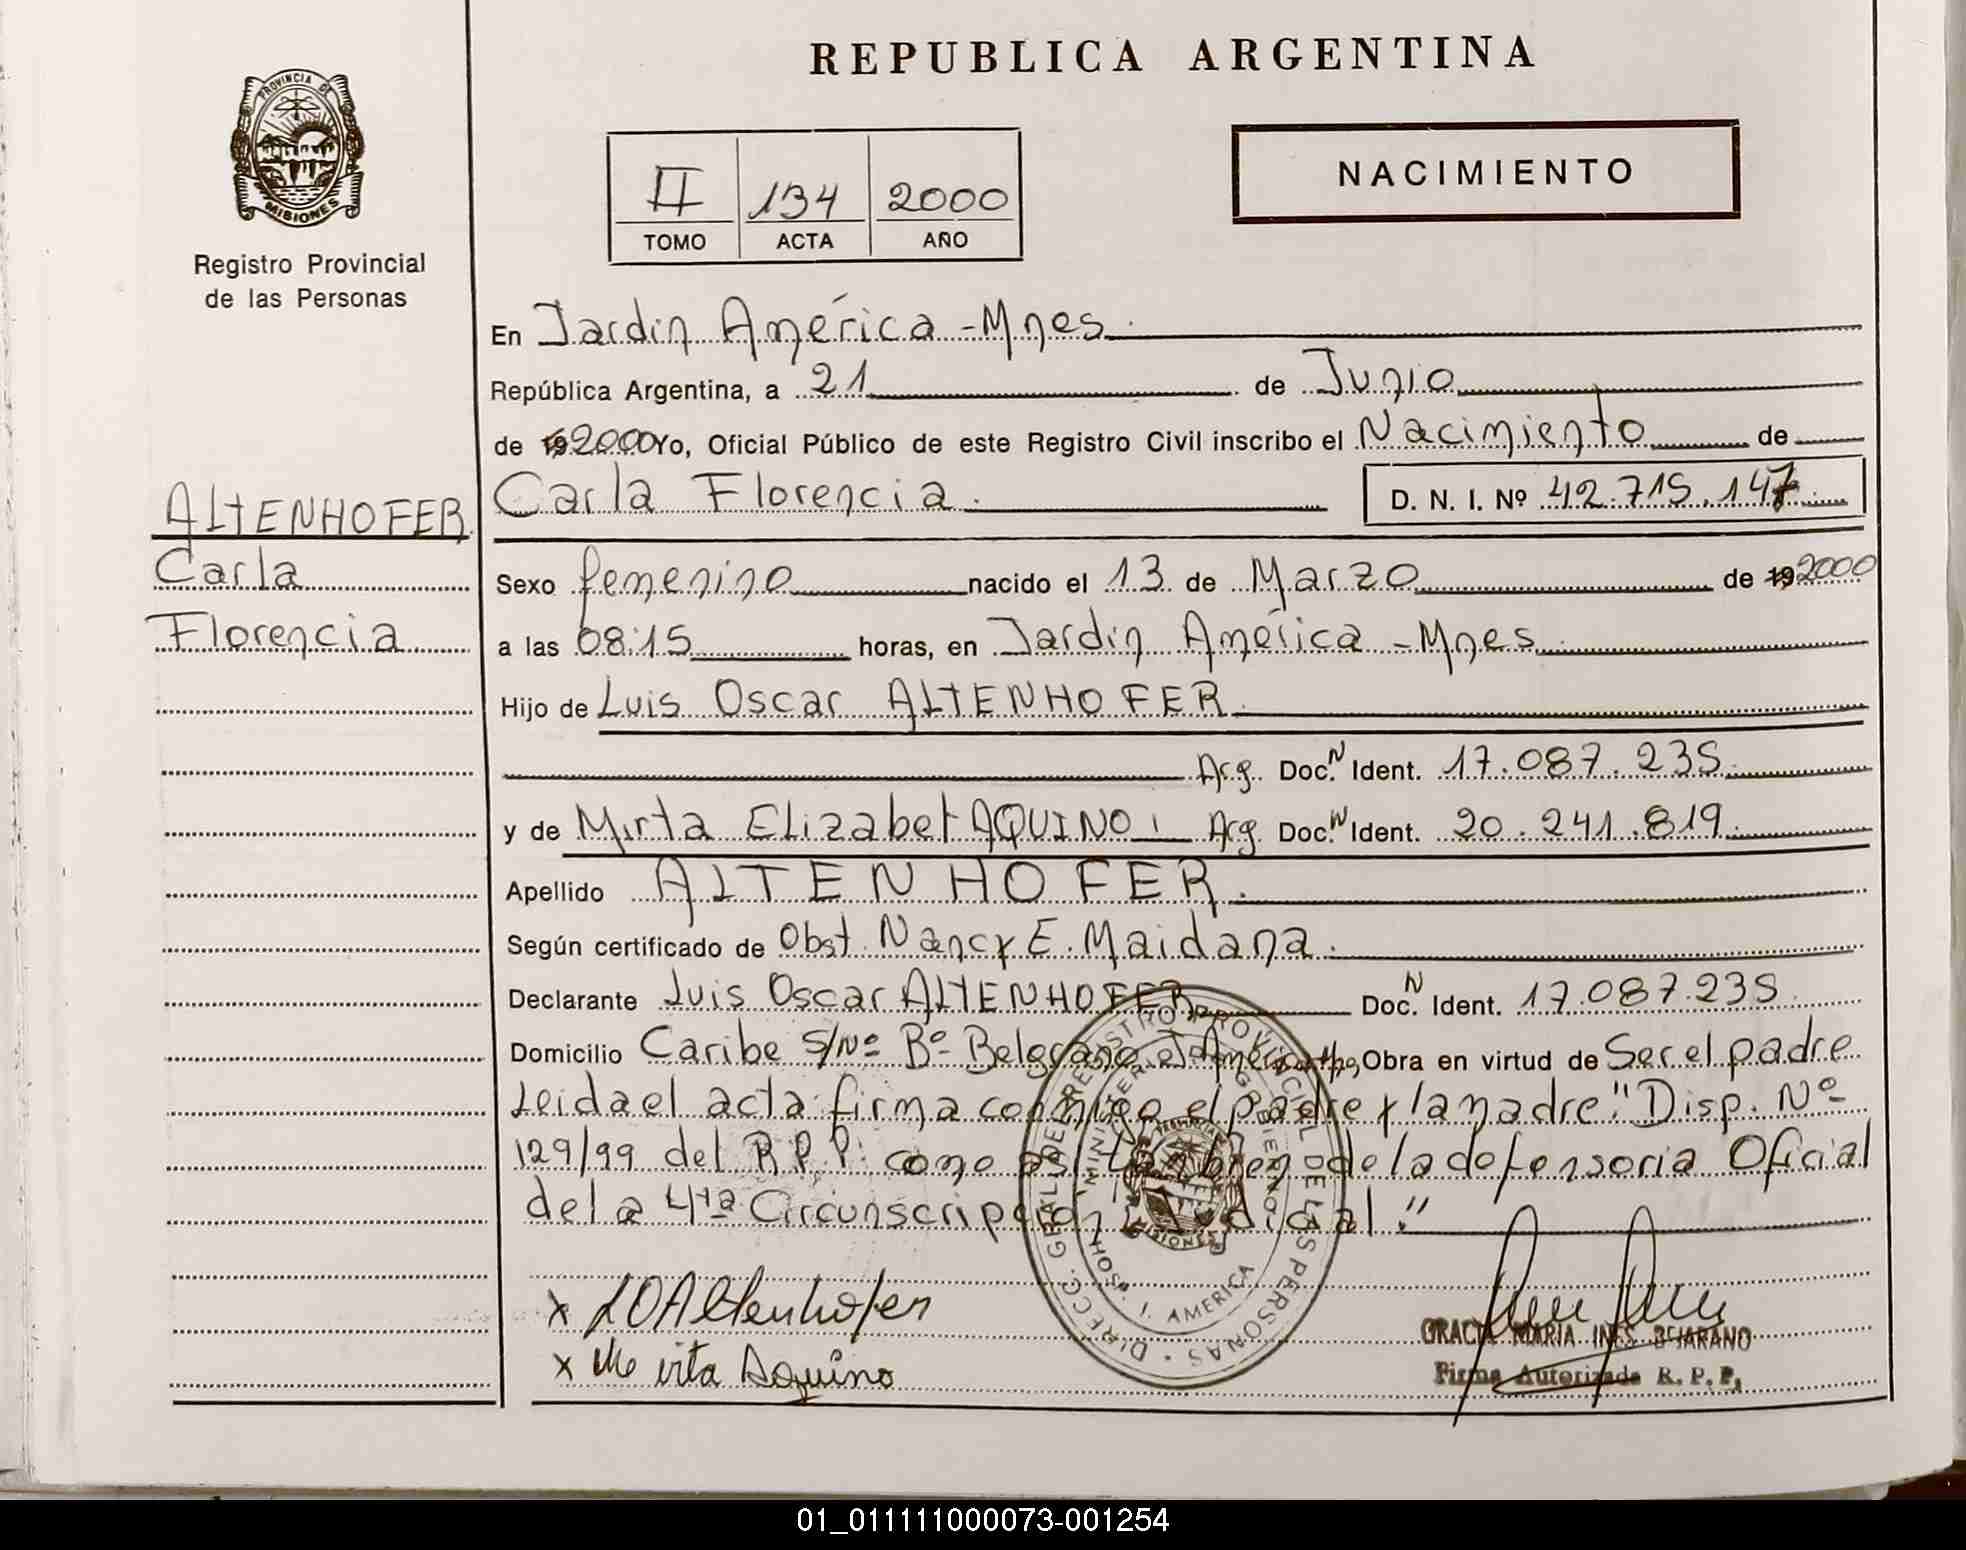 REPUBLICA ARGENTINA
PROVINCIA DE MISIONES
Registro Provincial
de las Personas
NACIMIENTO
II 134 2000
TOMO ACTA AÑO
En Jardin América - Mnes.
República Argentina, a 21 de Junio
de 19 2000 Yo, Oficial Público de este Registro Civil inscribo el Nacimiento de
ALTENHOFER
Carla
Florencia
Carla Florencia. D. N. I. Nº 42.715.147
Sexo femenino nacido el 13 de Marzo de 19 2000
a las 08:15 horas, en Jardin América - Mnes.
Hijo de Luis Oscar ALTENHOFER.
Arg. Doc. N Ident. 17.087.235
y de Mirta Elizabet AQUINO Arg. Doc. N Ident. 20.241.819
Apellido ALTENHOFER.
Según certificado de Obst. Nancy E. Maidana.
Declarante Luis Oscar ALTENHOFER Doc. N Ident. 17.087.235
Domicilio Caribe S/Nº Bº Belgrano J. América Obra en virtud de Ser el padre
Leida el acta firma conmigo el padre y la madre." Disp. Nº
129/99 del R.P.P. como asi tambien de la defensoria Oficial
de la 4ta Circunscripcion Judicial."
x LOAltenhofer
x Aquino
DIRECC. GRAL DEL REGISTRO PROVINCIAL DE LAS PERSONAS
MINISTERIO DE GOBIERNO
MISIONES
J. AMERICA
GRACIA MARIA INES BEJARANO
Firma Autorizada R. P. P.
01_011111000073-001254